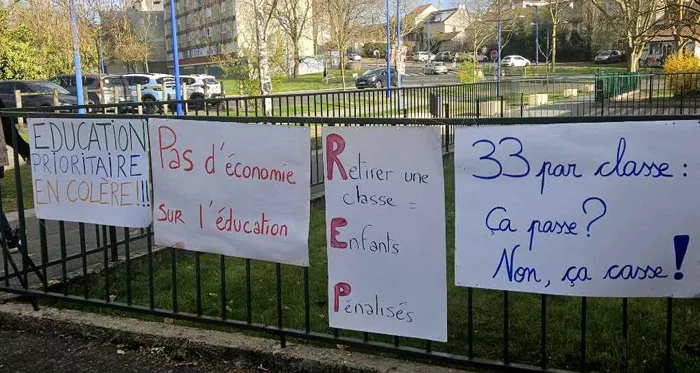 EDUCATION
PRIORITAIRE
EN COLÈRE!!!
Pas d'économie
sur l'éducation
Retirer une
classe =
Enfants
Pénalisés
33 par classe :
Ça passe ?
Non, ça casse !